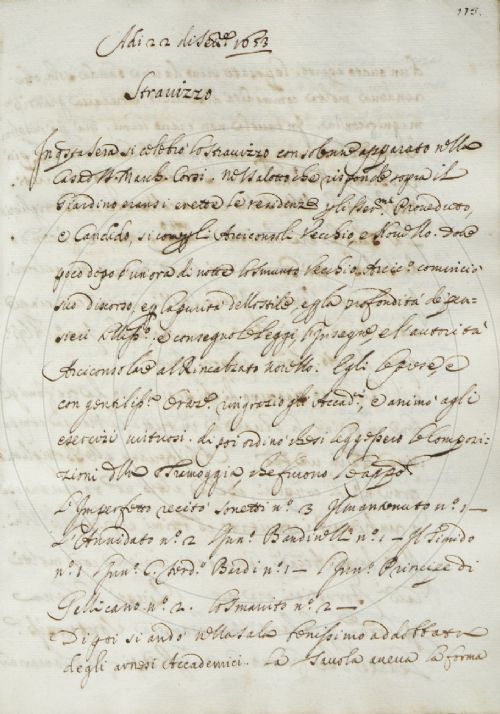 175.
Adi 22 di Sett.e 1653
Stravizzo
In questa sera si celebrò lo stravizzo con solenne apparato nella
Casa del March. Corsi. Nel salotto che risponde sopra il
Giardino eransi erette le residenze p gli Ser.mi Proveduto,
e Candido, si com p gli Arciconsoli Vecchio, e Novello. dove
poco dopo d'un'ora di notte lo Smunto Vecchio Arcic.o cominciò
suo discorso, e p la purità dello stile, e p la profondità de pen-
sieri e consegnò le Leggi, l'Insegne, e l'autorità
Arciconsolare al Rincalzato novello. Egli le prese, e
con gentiliss.a oraz.e ringraziò gli Accad.ci, e animò agli
esercizi virtuosi. di poi ordinò che si leggessero le Composi-
zioni della Tramoggia che furono le app.o
L'Imperfetto recitò sonetti n.o 3 Il Mantenuto n.o 1 —
L'Annidato n.o 2 l'Inn.o Bandinelli n.o 1 — Il Timido
n.o 1 l'Inn.o Bardi n.o 1 — l'Inn.o Principe di
Gallicano n.o 2. lo Smarrito n.o 2 —
Di poi si andò nella sala benissimo addobbata
degli arnesi Accademici. La Tavola aveva la forma